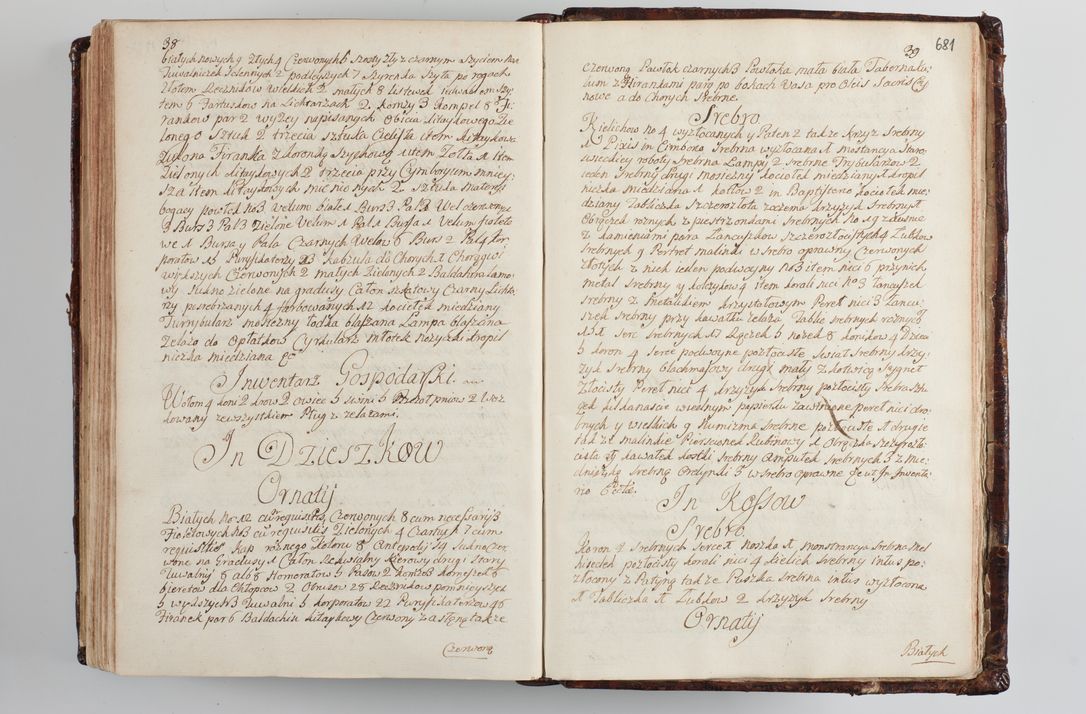 38
białych nowych 4 Żłtych 4 Czerwonych 5 szosty zły z czarnym szyciem
Tuwalniczek Zelennych 2 podleyszych 7 Szyrenka Szyta po rogach
złotem Ręcznikow Wielkich 2 małych 8 Listewek iedwabiem szy
tem 6 Fartuszkow na Lichtarzach 2 Komzy 3 Rompel 8 Fi
rankow par 2 wyżey napisanych Obicia Kitaykowego Zie
lonego Sztuk 2 trzecia sztuka Cielista item Kitaykowa
Zielona Firanka z koronką Szychową item Zołta 1 Item
Zielonych Kitaykowych 2 trzecia przy Cymboryum mniey
sza item Kitaykowych mienionych 2 Sztuka materyi
bogaty powłok No 3 Velum białe 1 Burs 3 Pal 2 Vel czerwony
2 Burs 3 Pal 3 Zielone Velum 1 Pal 1 Bursa 1 Velum fioleto
we 1 Bursa y Pala Czarnych Welow 6 Burs 2 Pal 4 Kor
poratow 15 Puryfikaterzy 23 Kapzula do Chorych 1 Chorągwi
większych Czerwonych 2 małych Zielonych 2 Baldakin lamo
wy Sukno zielone na gradusy Całon Szkatowy Czarny Lichta
rzy posrebrzanych 4 farbowanych 12 Kociełek miedziany
Turrybularz mosiężny łodka blaszana Lampa blaszana
Zelazo do Opłatkow Cyrkularz młotek nożyczki Kropil
niczka miedziana &c
Inwentarz Gospodarski.
Wołow 4 koni 2 krow 2 owiec 5 swini 5
kowany zewszystkiem Pług z zelazami.
In Dzieszkow
Ornatij
Białych No 12 cū requisitis, Czerwonych 8 cum necessarijs
Fioletowych No 3 cū requisitis Zielonych 4 Czarnych 7 cum
requisitis Kap rożnego koloru 8 Antepedij 14 Sukno Czer
wone na Gradusy 1 Całon Szkwialny kierowy drugi stary
Tuwalny 8 alb 8 Homoratow 5 Pasow 2 komż 3 komżek 8
bieretow dla Chłopcow 2 Obrusow 28 Ręcznikow pomnieyszych
5 większych 3 Tuwalni 5 korporatow 22 Puryfikaterzow 46
Firanek par 6 Baldachin kitaykowy Czerwony zastęna także
Czerwona
39
681
czerwona Pawłok czarnych 3 Powłoka mała biała Tabernaku,
lum z Firankami parą po bokach Vasa pro Oleis Sacris Cy
nowe a do Chorych srebrne.
Srebro
Kielichow No 4 wyzłocanych y Paten 2 także Krzyż Srebrny
1 Pixis in Cymborio Srebrna wyzłocana 1 Mostancya Staro
swieckiey roboty srebrna Lampy 2 srebrne Trybularzow 2
ieden srebrny drugi mosiężny Kociołek miedziany Kropil
niczka miedziana 1 kotłow 2 in Baptisterio kociełek mie
dziany Tabliczka Szczerozłota zażema Krzyżyk srebrny 1
Obrączek rożnych z piestrzonkami srebrnych No 19 zdawnie
z kamieniami para Łancyszkow szczerozłocistych 4 Zubkow
srebrnych 9 Portret malinki w srebro oprawny Czerwonych
złotych z nich ieden podwoyny No 3 item nici 6 przynich
metal srebrny y kolczykow 4 item korali nici No 3 Łancuszek
srebrny z Metalikiem krzyształowym Pereł nici 3 Łancu
szek srebrny przy kawałku zelaza Tablic srebrnych rożnych
151 Serc srebrnych 17 Rączek 5 nożek 8 konikow 4 Dzieci
5 koron 4 Serce podwoyne pozłociste Swiat srebrny krzy,
żyk srebrny blachmałowy drugi mały z kotwicą Sygnet
złocisty Pereł nici 4 krzyżyk srebrny pozłocisty srebra sztu
czek kilkanascie wiednym papierku zawinione pereł nici dro
bnych y wielkich 9 Numizma srebrne pozłociste 1 drugie
takze malinkie Pierscionek Rubinowy 1 Obrączka szczyrozło
cista 1 kawałek kostki srebrny Ampułek srebrnych 3 z mie
dniczką srebrną Ordynki 3 w srebro oprawne &c ut in Inventa
rio Eccłæ.
In Kossow
Srebro
Koron 2 srebrnych Serce 1 Noszka 1 monstrancya srebrna Mel
hisedek pozłocisty korali nici 4 Kielich srebrny intus po
złocony z Patyną także Puszka srebrna intus wyzłocona
1 Tabliczka 1 Zubkow 2 krzyżyk srebrny
Ornatij
Białych